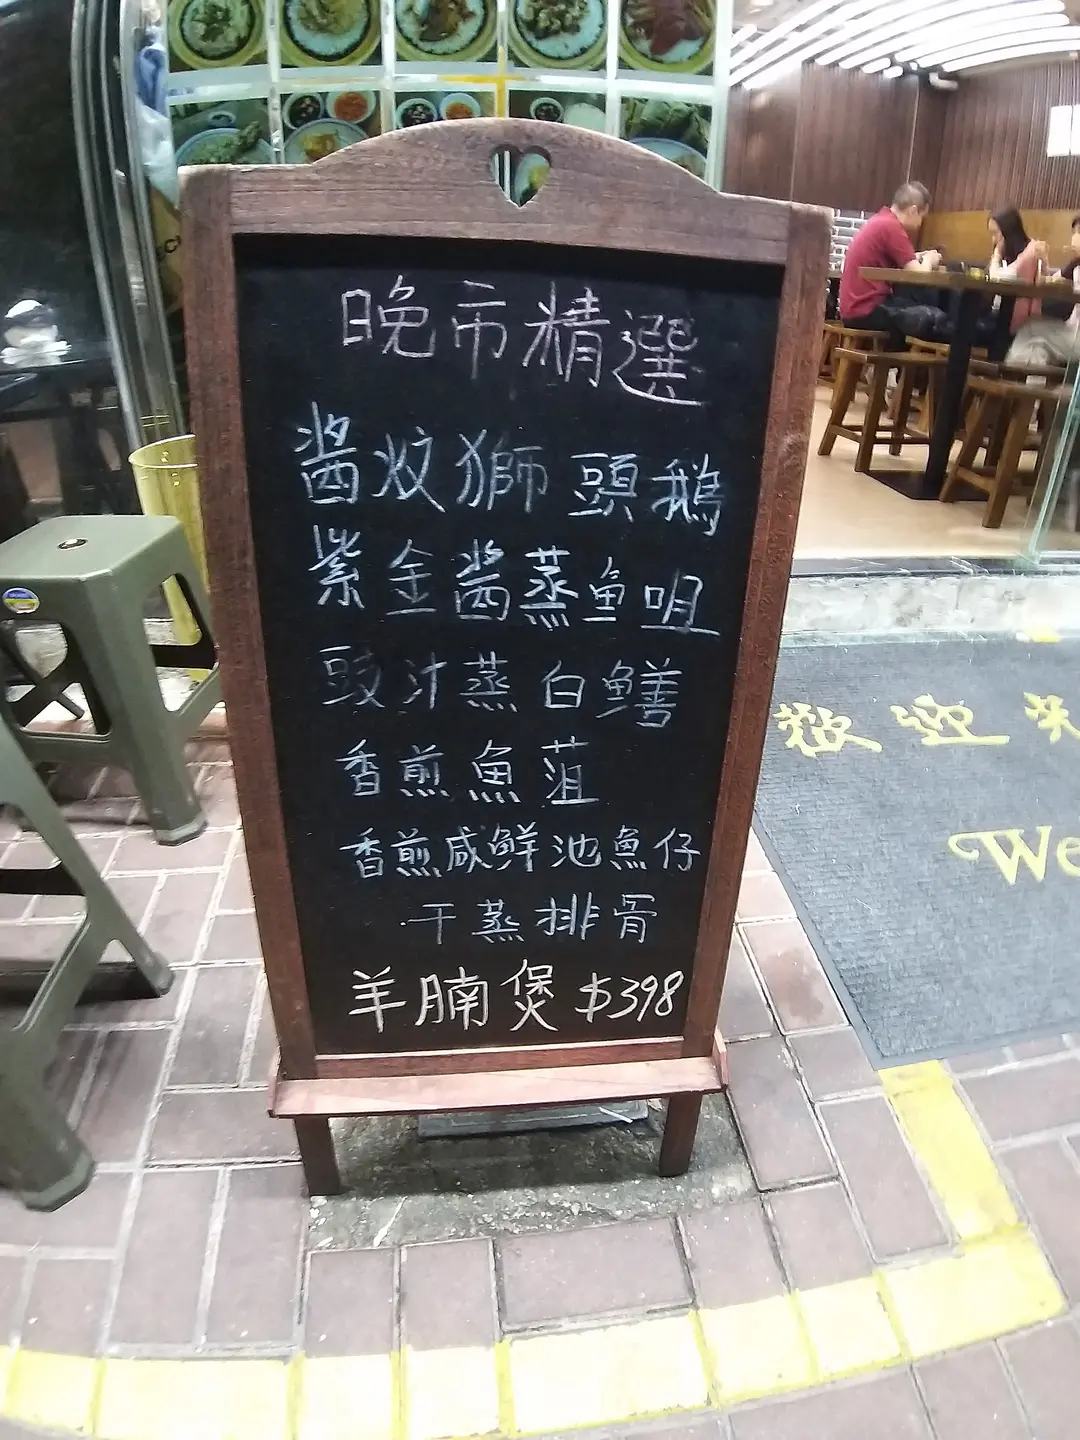 晚市精選
酱炆獅頭鵝
紫金酱蒸鱼咀
豉汁蒸白鱔
香煎魚菹
香煎咸鲜池魚仔
干蒸排骨
羊腩煲 $398
歡迎光
We